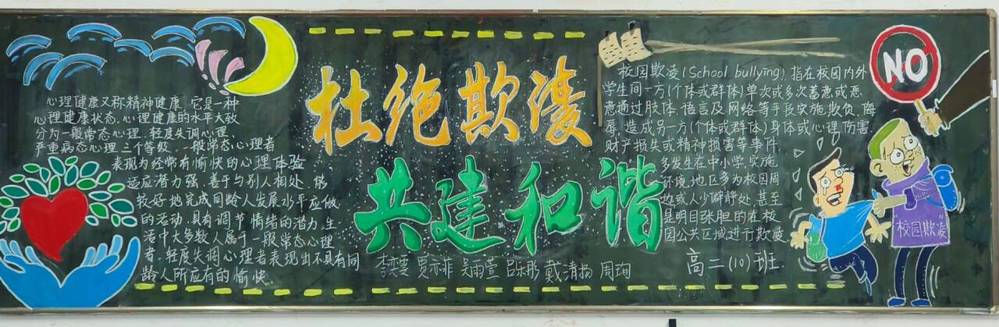 心理健康又称精神健康，它是一种
心理健康状态。心理健康的水平大致
分为一般常态心理、轻度失调心理、
严重病态心理三个等级。一般常态心理者
表现为经常有愉快的心理体验
适应潜力强，善于与别人相处，能
较好地完成同龄人发展水平应做
的活动，具有调节情绪的潜力。生
活中大多数人属于一般常态心理
者。轻度失调心理者表现出不具有同
龄人所应有的愉快
杜绝欺凌
共建和谐
夏 菲 吴雨萱 戴清扬 周
校园欺凌(School bullying)指在校园内外
学生间一方(个体或群体)单次或多次蓄意或恶
意通过肢体、语言及网络等手段实施欺负、侮
辱，造成另一方(个体或群体)身体或心理伤害、
财产损失或精神损害等事件。
多发生在中小学，实施
环境地区多为校园周
边或人少僻静处，甚至
是明目张胆的在校
园公共区域进行欺凌
高二(10)班
NO
校园欺凌